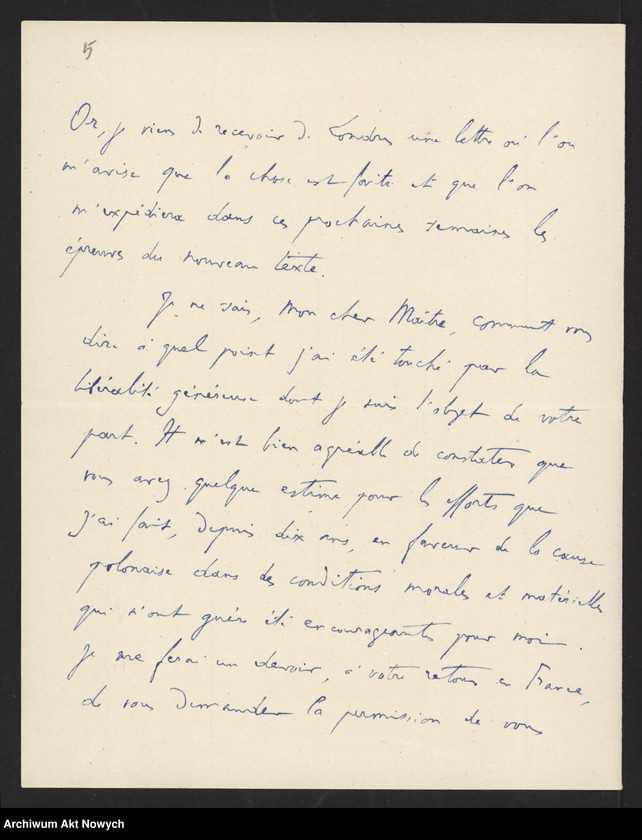 5
Or, je viens de recevoir de Londres une lettre où l'on
m'avise que la chose est faite et que l'on
m'expédiera dans ces prochaines semaines les
épreuves du nouveau texte.
Je ne sais, mon cher Maître, comment vous
dire à quel point j'ai été touché par la
libéralité généreuse dont je suis l'objet de votre
part. Il m'est bien agréable de constater que
vous avez quelque estime pour les efforts que
j'ai fait, depuis dix ans, en faveur de la cause
polonaise dans des conditions morales et matérielles
qui n'ont guère été encourageantes pour moi.
Je me ferai un devoir, à votre retour en France,
de vous demander la permission de vous
Archiwum Akt Nowych